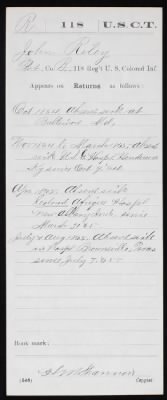 R | 118 | U.S.C.T.
John Riley
Pvt., Co. , 118 Reg't U. S. Colored Inf.
Appears on Returns as follows:
Oct 1864 Absent sick at
Baltimore Md.
to March '65, absent
sick Hosp'l
since Oct 7 '64
Apr 1865 Absent sick
Hospl
New Albany Ind. since
March 31 65
July & Aug 1865. Absent sick
in Hospl Brownsville, Texas
since July 7, 65
Book mark:
(546)
Copyist.